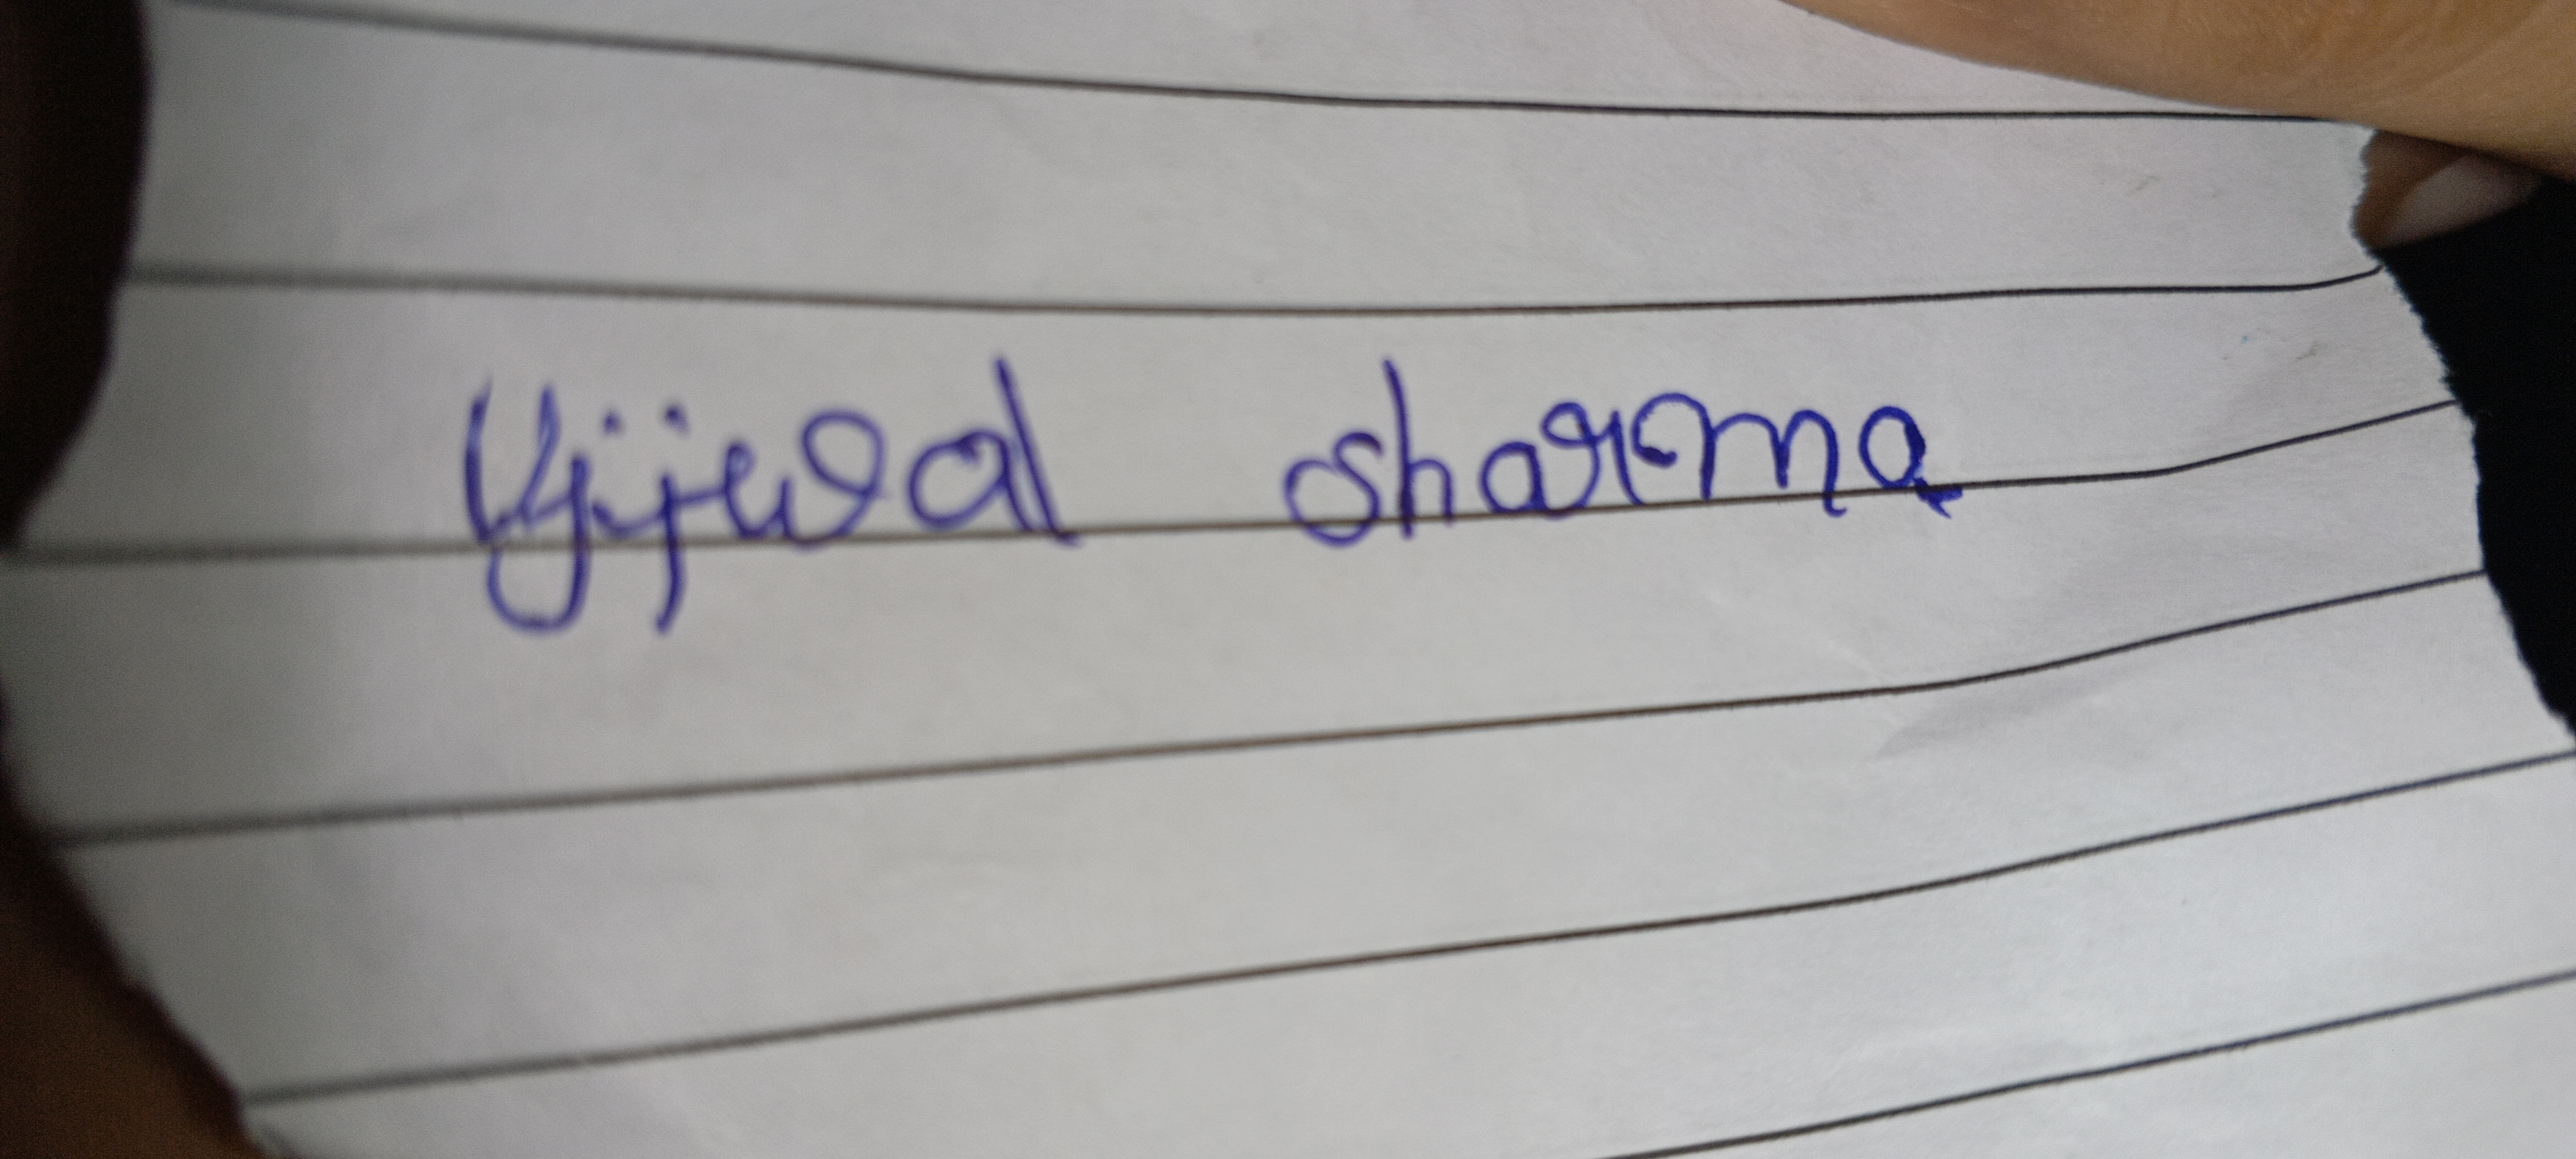 Ujjwal sharma